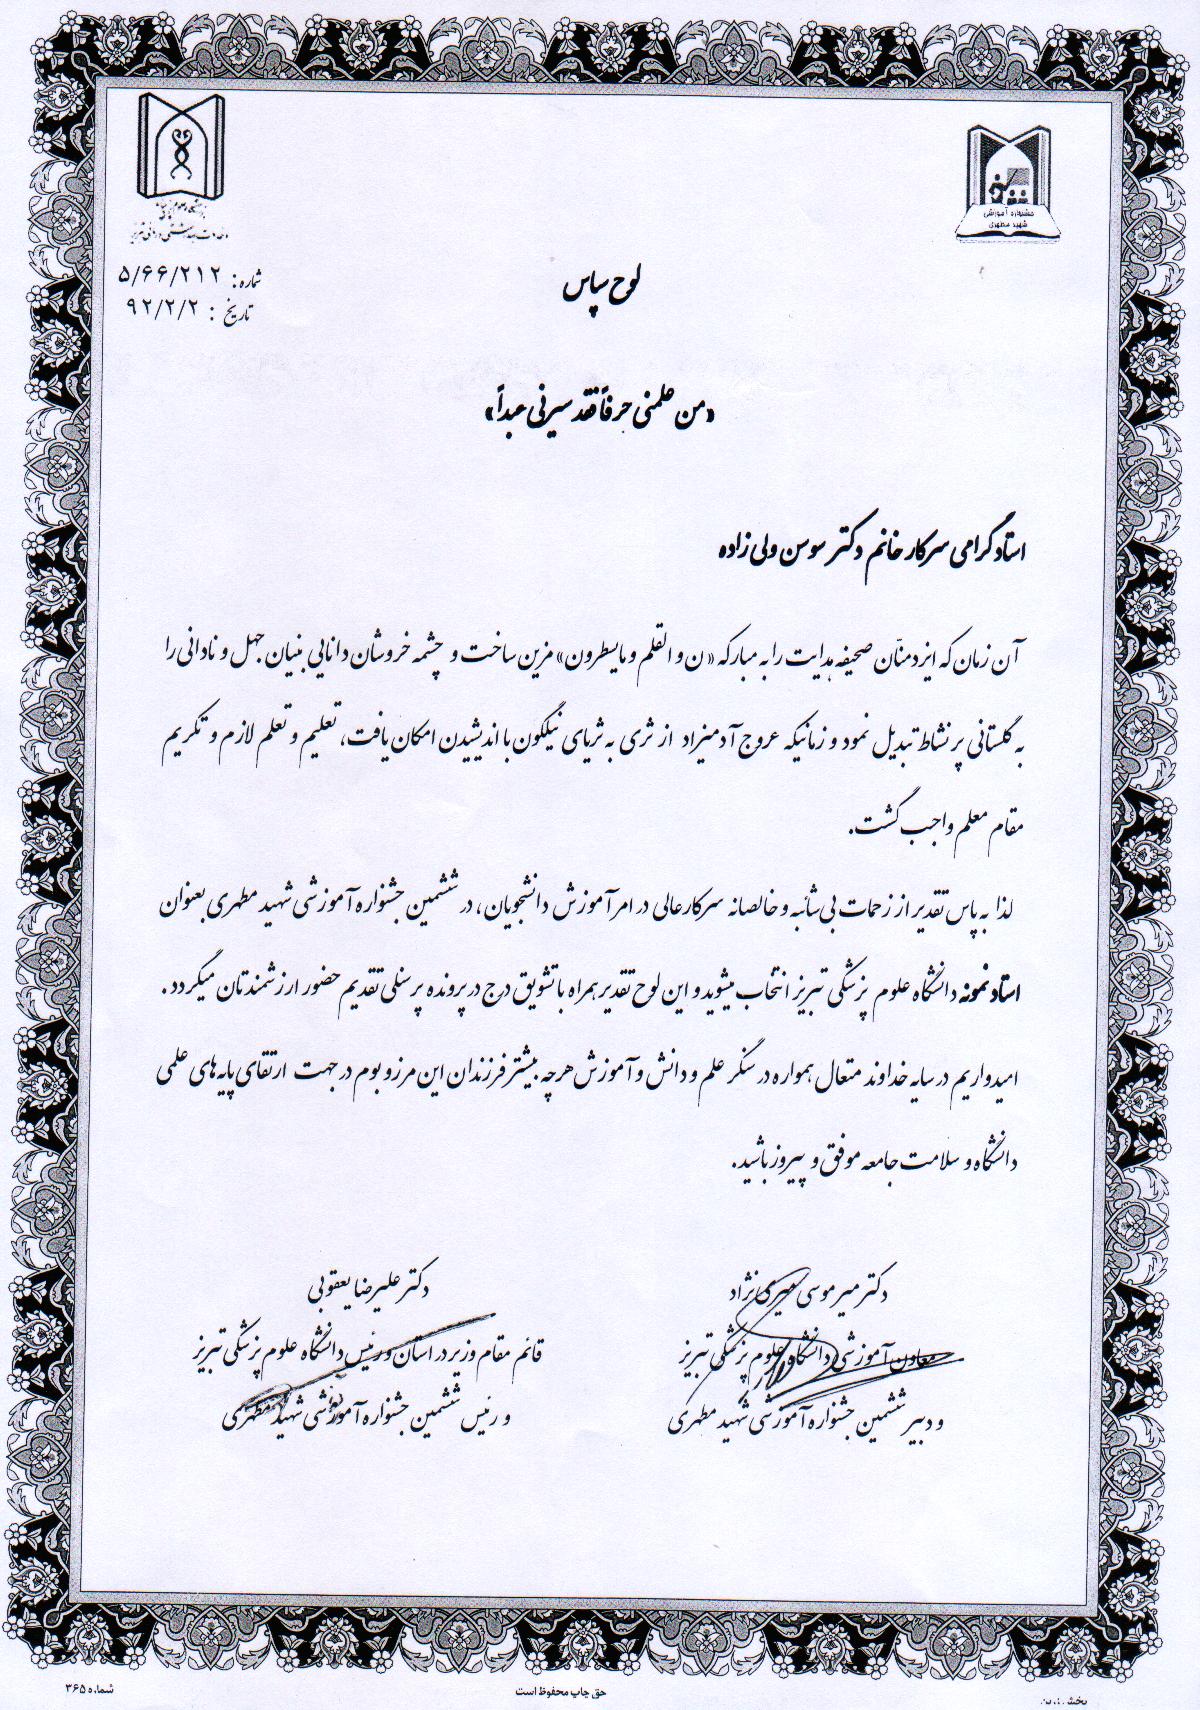 جشنواره آموزشی
شهید مطهری
دانشگاه علوم پزشکی
و خدمات بهداشتی درمانی تبریز
شماره: ۵/۶۶/۲۱۲
تاریخ : ۹۲/۲/۲
لوح سپاس
«من علمنی حرفاً فقد سیرنی عبداً»
استاد گرامی سرکار خانم دکتر سوسن ولی زاده
آن زمان که ایزد منّان صحیفه هدایت را به مبارکه «ن و القلم و مایسطرون» مزین ساخت و چشمه خروشان دانایی بنیان جهل و نادانی را
به گلستانی پر نشاط تبدیل نمود و زمانیکه عروج آدمیزاد از ثری به ثریای نیلگون با اندیشیدن امکان یافت، تعلیم و تعلم لازم و تکریم
مقام معلم واجب گشت.
لذا به پاس تقدیر از زحمات بی شائبه و خالصانه سرکار عالی در امر آموزش دانشجویان، در ششمین جشنواره آموزشی شهید مطهری بعنوان
استاد نمونه دانشگاه علوم پزشکی تبریز انتخاب میشوید و این لوح تقدیر همراه با تشویق درج در پرونده پرسنلی تقدیم حضور ارزشمندتان میگردد.
امیدواریم در سایه خداوند متعال همواره در سنگر علم و دانش و آموزش هرچه بیشتر فرزندان این مرز و بوم در جهت ارتقای پایه های علمی
دانشگاه و سلامت جامعه موفق و پیروز باشید.
دکتر میر موسی میری نژاد
معاون آموزشی دانشگاه علوم پزشکی تبریز
و دبیر ششمین جشنواره آموزشی شهید مطهری
دکتر علیرضا یعقوبی
قائم مقام وزیر در استان و رئیس دانشگاه علوم پزشکی تبریز
و رئیس ششمین جشنواره آموزشی شهید مطهری
حق چاپ محفوظ است
شماره ۳۶۵